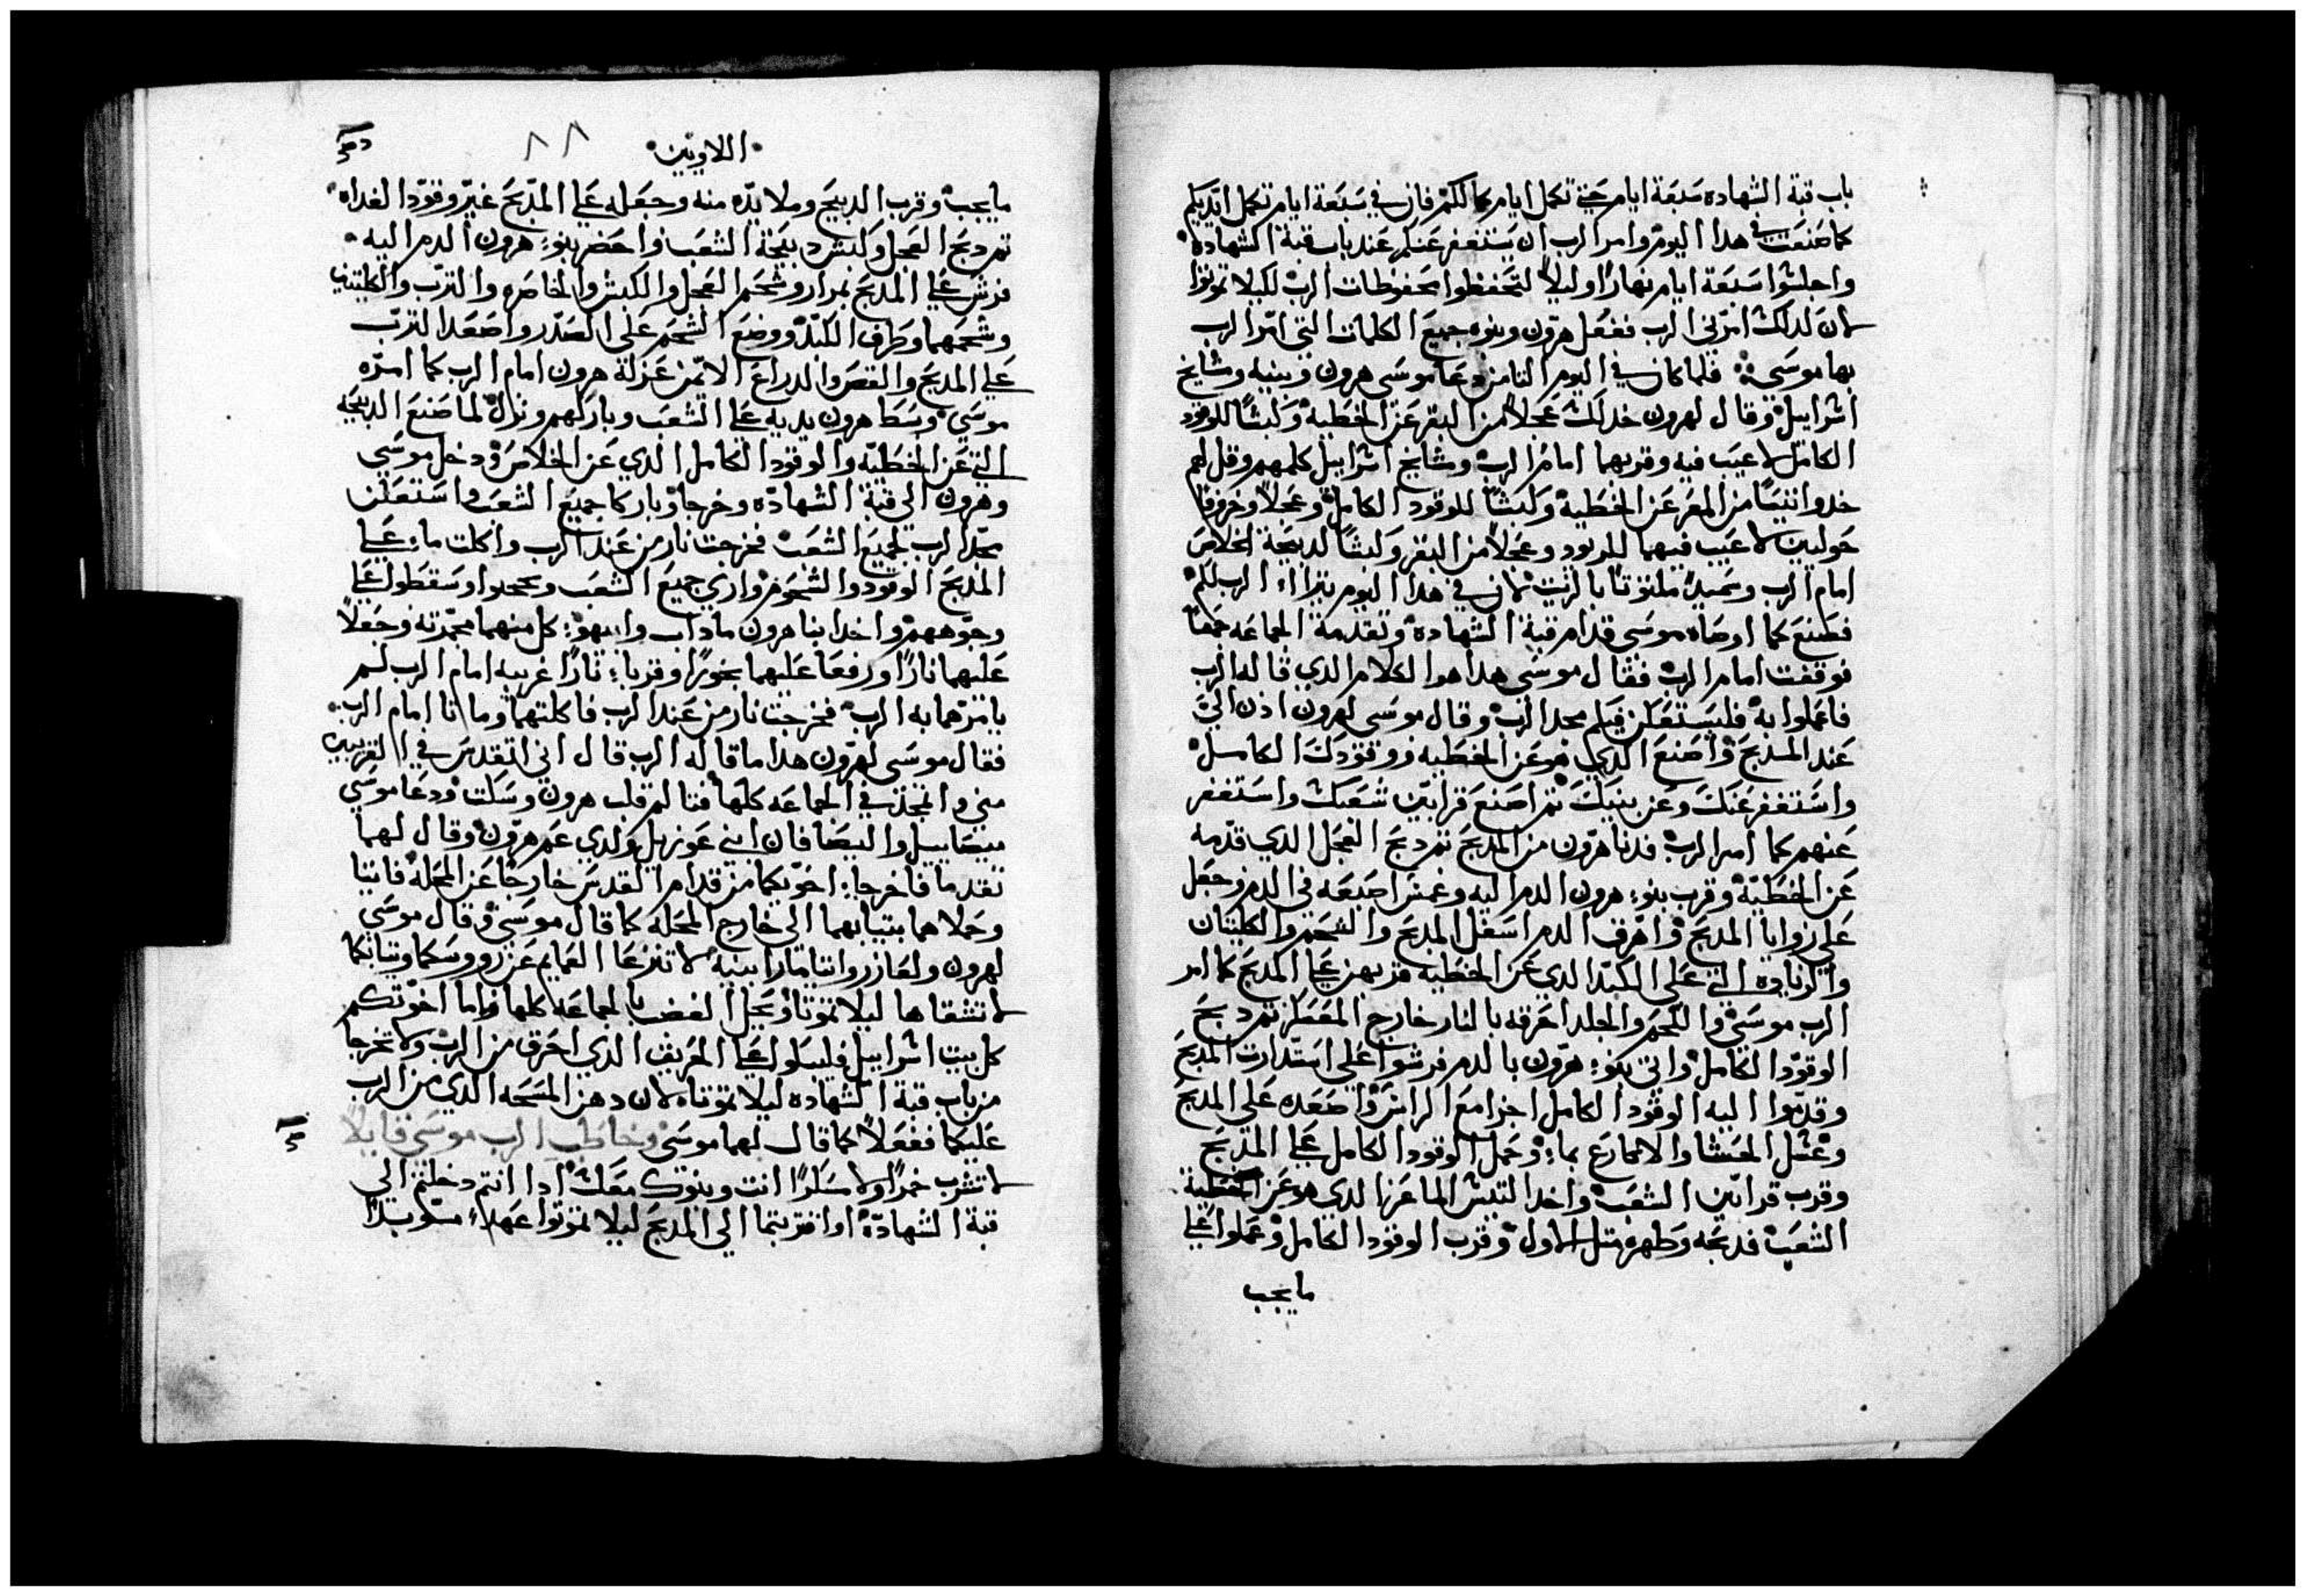 باب قبة الشهاده سبعة ايام حتي تكمل ايام كمالكم فان في سبعة ايام تكمل ايديكم
كما صنعت في هدا اليوم وامر الرب ان يستغفر عنكم عند باب قبة الشهادة
واجلسوا سبعة ايام نهارًا وليلاً لتحفظوا محفوظات الرب لكيلا تموتوا
لان لدلك امرني الرب ففعل هرون وبنوه جميع الكلمات التي امر الرب
بها موسي فلما كان في اليوم التامن دعا موسى هرون وبنيه ومشايخ
اسراييل وقال لهرون خد لك عجلاً من البقر عن الخطيه وكبشًا للوقود
الكامل لا عيب فيه وقربهما امام الرب ومشايخ اسراييل كلمهم وقل لهم
خدوا تيسًا من المعز عن الخطية وكبشًا للوقود الكامل وعجلاً وخروفًا
حوليين لا عيب فيهما للوقود وعجلاً من البقر وكبشًا لدبيحة الخلاص
امام الرب وسميدًا ملتوتًا بالزيت لان في هدا اليوم يتراا الرب لكم
فصنع كما اوصاه موسى قدام قبة الشهادة وتقدمة الجماعه جمعًا
فوقفت امام الرب فقال موسى هدا هو الكلام الدي قاله الرب
فاعملوا به فليستعلن فيكم مجد الرب وقال موسى لهرون ادن الي
عند المدبح واصنع الدي هو عن الخطيه ووقودك الكامل
واستغفر عنك وعن بنيك تم اصنع قرابين شعبك واستغفر
عنهم كما امر الرب فدنا هرون من المدبح تم دبح العجل الدي قدمه
عن الخطية وقرب بنو هرون الدم اليه وغمس اصبعه في الدم وجعل
علي زوايا المدبح واهرق الدم اسفل المدبح والشحم والكليتان
والزياده التي على الكبد الدي عن الخطية قربهن علي المدبح كما امر
الرب موسى واللحم والجلد احرقه بالنار خارج المعسكر تم دبح
الوقود الكامل واتي بنو هرون بالدم فرشوا على استدارت المدبح
وقدموا اليه الوقود الكامل اجزا مع الراس واصعده على المدبح
وغسل الحشا والاكارع بما وجعل الوقود الكامل علي المدبح
وقرب قرابين الشعب واخد التيس الماعز الدي هو عن خطية
الشعب فدبحه وطهره متل الاول وقرب الوقود الكامل وعملوا علي
ما يجب
اللاويين ٨٨
ما يجب وقرب الدبيح وملا يده منه وجعله علي المدبح غير وقود الغداه
تم دبح العجل وكبش دبيحة الشعب واحضر بنو هرون الدم اليه
فرش علي المدبح بمدار وشحم العجل والكبش والخاصره والترب والكليتين
وشحمهما وطرف الكبد ووضع الشحم على الصدر واصعد الترب
علي المدبح والقص والدراع الايمن عزلة هرون امام الرب كما امره
موسى وبسط هرون يديه علي الشعب وباركهم ونزل لما صنع الدبيحه
التي عن الخطيه والوقود الكامل الدي عن الخلاص ودخل موسي
وهرون الي قبة الشهاده وخرجا وباركا جميع الشعب واستعلن
مجد الرب لجميع الشعب فخرجت نار من عند الرب واكلت ما علي
المدبح الوقود والشحوم وراي جميع الشعب وعجبوا وسقطوا علي
وجوههم واخد ابنا هرون ناداب وابيهو كل منهما مجمرته وجعلا
عليهما نارًا ورفعا عليهما بخورًا وقربا نارًا غريبه امام الرب لم
يامرهما به الرب فخرجت نار من عند الرب فاكلتهما وماتا امام الرب
فقال موسى لهرون هدا ما قاله الرب قال اني اتقدس في القريبين
مني واتمجد في الجماعه كلها فتالم قلب هرون وسكت ودعا موسي
ميصاييل واليصافان ابني عوزييل ولدي عم هرون وقال لهما
تقدما فاخرجا اخويكما من قدام القدس خارجًا عن المحلة فاتيا
وحملاهما بتيابهما الي خارج المحله كما قال موسي وقال موسي
لهرون ولعازر وايتامار ابنيه لا تنزعا العمايم عن رووسكما وتيابكما
لا تشقاها ليلا تموتا ويحل الغضب بالجماعه كلها واما اخوتكم
كل بيت اسراييل فليبكوا علي الحريق الدي احرق من الرب ولا تخرجا
من باب قبة الشهاده ليلا تموتا لان دهن المسحه الدي من الرب
عليكما ففعلا كما قال لهما موسى وخاطب الرب موسى قايلاً
لا تشرب خمرًا ولا مسكرًا انت وبنوك معك ادا انتم دخلتم الي
قبة الشهادة او اقتربتما الي المدبح ليلا تموتوا عهدًا موبدًا